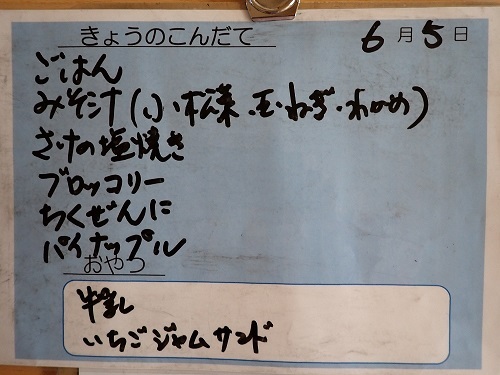 きょうのこんだて 6月5日
ごはん
みそ汁(小松菜・玉ねぎ・わかめ)
さけの塩焼き
ブロッコリー
ちくぜんに
パイナップル
おやつ
牛乳
いちごジャムサンド